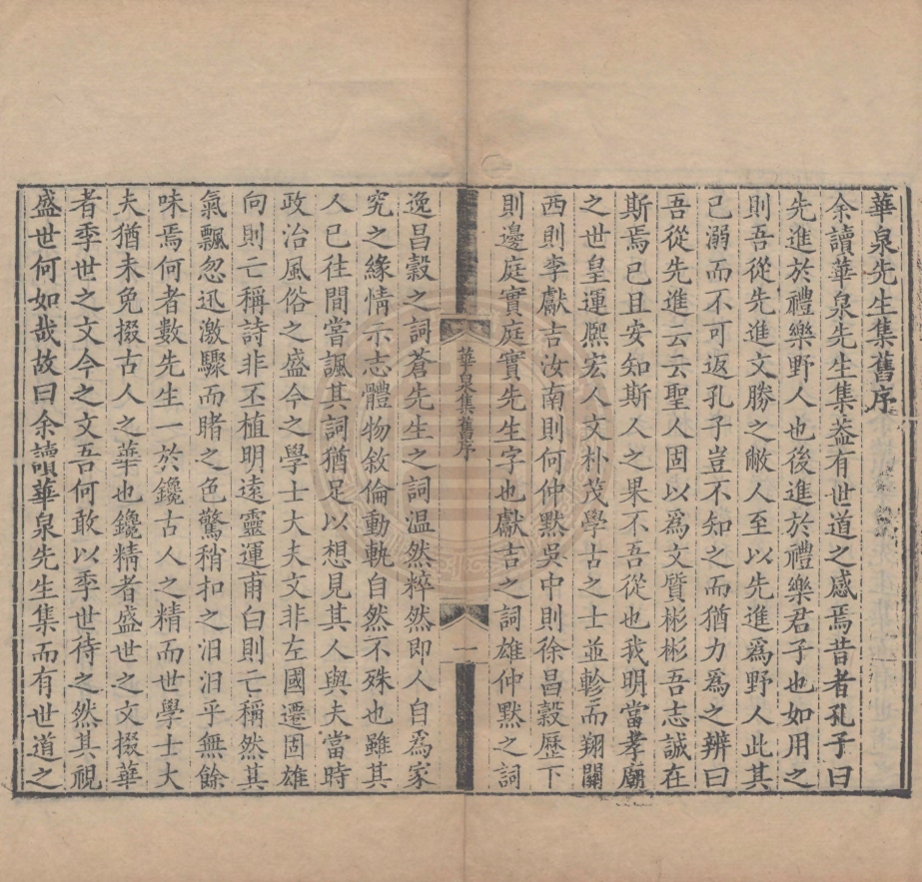 華泉先生集舊序
余讀華泉先生集葢有世道之感焉昔者孔子曰
先進於禮樂野人也後進於禮樂君子也如用之
則吾從先進文勝之敝人至以先進爲野人此其
已溺而不可返孔子豈不知之而猶力爲之辨曰
吾從先進云云聖人固以爲文質彬彬吾志誠在
斯焉已且安知斯人之果不吾從也我明當孝廟
之世皇運熈宏人文朴茂學古之士並軫而翔關
西則李獻吉汝南則何仲默吳中則徐昌穀歷下
則邊庭實庭實先生字也獻吉之詞雄仲默之詞
華泉集舊序
一
逸昌穀之詞蒼先生之詞温然粹然即人自爲家
究之緣情示志體物敘倫動軌自然不殊也雖其
人已往間嘗諷其詞猶足以想見其人與夫當時
政治風俗之盛今之學士大夫文非左國遷固雄
向則亡稱詩非丕植明遠靈運甫白則亡稱然其
氣飄忽迅激驟而睹之色驚稍扣之汨汨乎無餘
味焉何者數先生一於鑱古人之精而世學士大
夫猶未免掇古人之華也鑱精者盛世之文掇華
者季世之文今之文吾何敢以季世待之然其視
盛世何如哉故曰余讀華泉先生集而有世道之